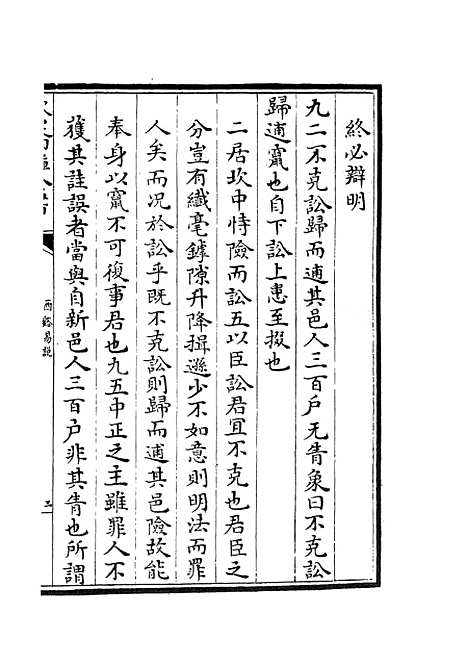 終必辯明
九二不克訟歸而逋其邑人三百戶无眚象曰不克訟
歸逋竄也自下訟上患至掇也
二居坎中恃險而訟五以臣訟君宜不克也君臣之
分豈有纖毫罅隙升降揖遜少不如意則明法而罪
人矣而况於訟乎既不克訟則歸而逋其邑險故能
奉身以竄不可復事君也九五中正之主雖罪人不
獲其註誤者當與自新邑人三百户非其眚也所謂
西谿易說